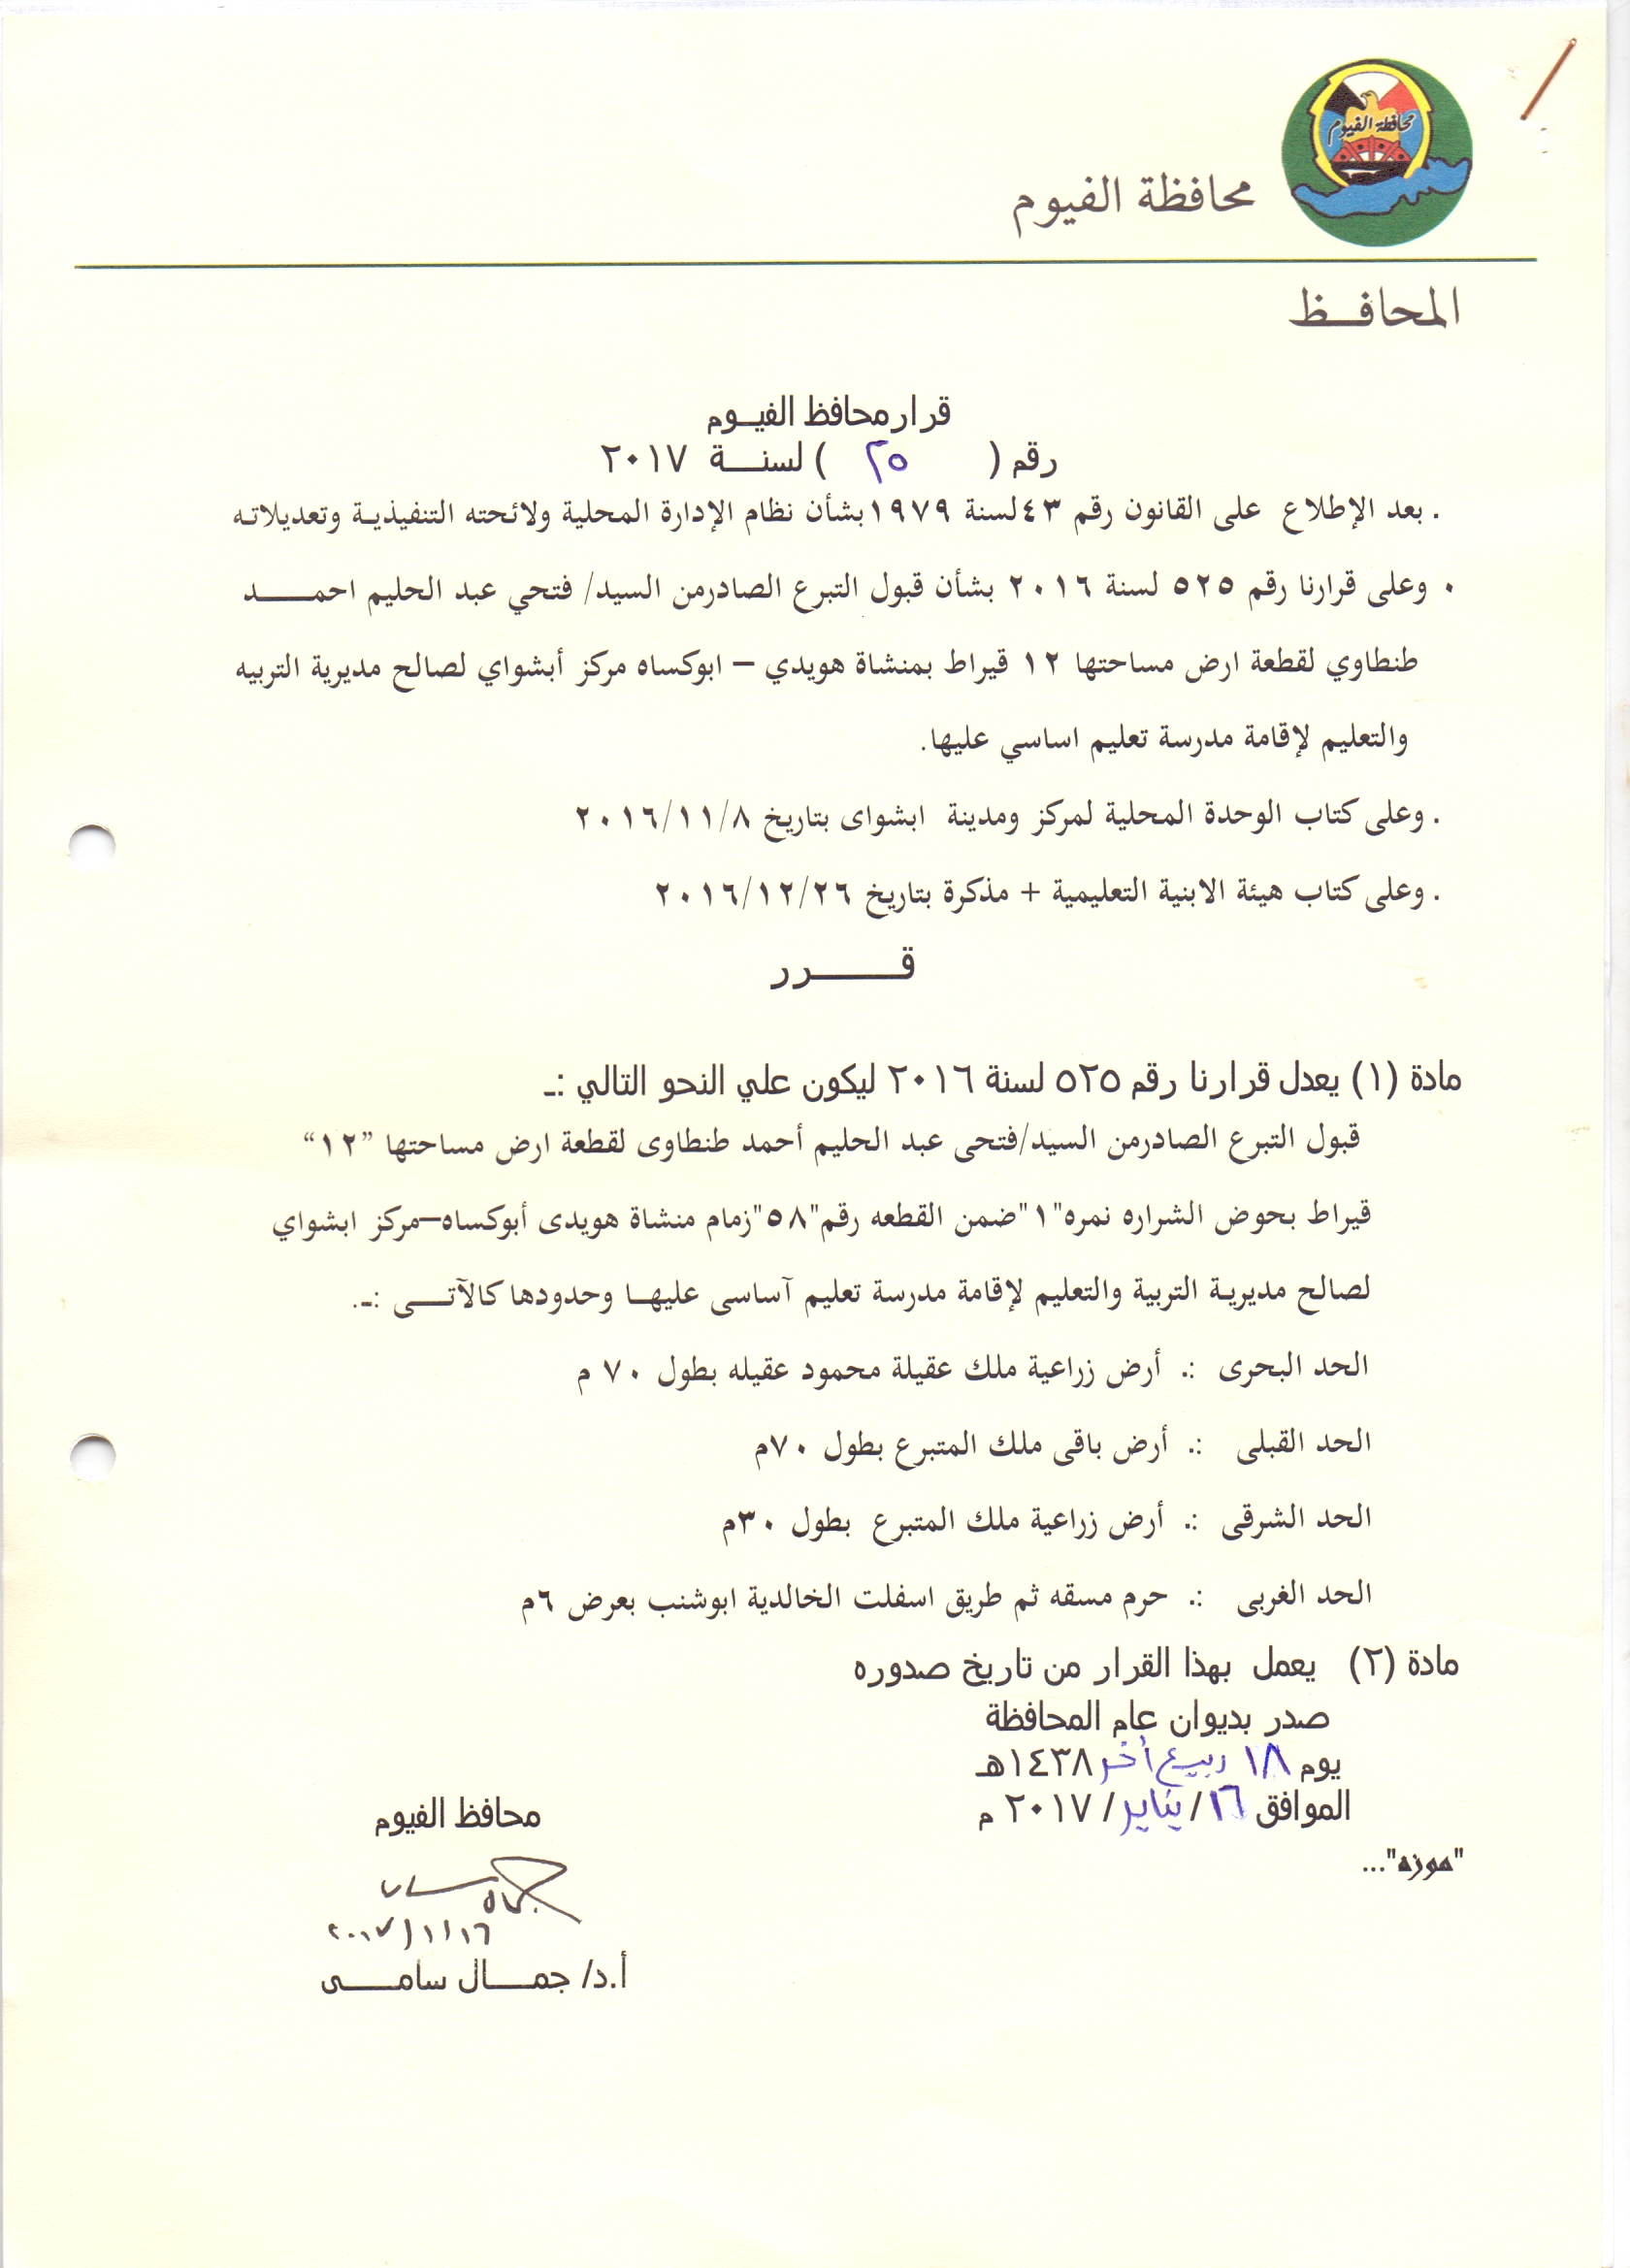 محافظة الفيوم
محافظة الفيوم
المحافـــظ
قرار محافظ الفيــوم
رقم ( ٢٥ ) لسنـــة ٢٠١٧
. بعد الإطلاع على القانون رقم ٤٣ لسنة ١٩٧٩ بشأن نظام الإدارة المحلية ولائحته التنفيذية وتعديلاته
٠ وعلى قرارنا رقم ٥٢٥ لسنة ٢٠١٦ بشأن قبول التبرع الصادرمن السيد/ فتحي عبد الحليم احمـــــد
طنطاوي لقطعة ارض مساحتها ١٢ قيراط بمنشاة هويدي – ابوكساه مركز أبشواي لصالح مديرية التربيه
والتعليم لإقامة مدرسة تعليم اساسي عليها.
. وعلى كتاب الوحدة المحلية لمركز ومدينة ابشواى بتاريخ ٢٠١٦/١١/٨
. وعلى كتاب هيئة الابنية التعليمية + مذكرة بتاريخ ٢٠١٦/١٢/٢٦
قـــــــرر
مادة (١) يعدل قرارنا رقم ٥٢٥ لسنة ٢٠١٦ ليكون علي النحو التالي :ـ
قبول التبرع الصادرمن السيد/فتحى عبد الحليم أحمد طنطاوى لقطعة ارض مساحتها ”١٢“
قيراط بحوض الشراره نمره"١"ضمن القطعه رقم"٥٨"زمام منشاة هويدى أبوكساه–مركز ابشواي
لصالح مديرية التربية والتعليم لإقامة مدرسة تعليم آساسى عليهـا وحدودها كالآتــــى :ـ.
الحد البحرى :. أرض زراعية ملك عقيلة محمود عقيله بطول ٧٠ م
الحد القبلى :. أرض باقى ملك المتبرع بطول ٧٠م
الحد الشرقى :. أرض زراعية ملك المتبرع بطول ٣٠م
الحد الغربى :. حرم مسقه ثم طريق اسفلت الخالدية ابوشنب بعرض ٦م
مادة (٢) يعمل بهذا القرار من تاريخ صدوره
صدر بديوان عام المحافظة
يوم ١٨ ربيع آخر ١٤٣٨هـ
الموافق ١٦/ يناير/ ٢٠١٧ م
محافظ الفيوم
"موزه"...
جمال سامى
٢٠١٧/١/١٦
أ.د/ جمــــال سامـــــى